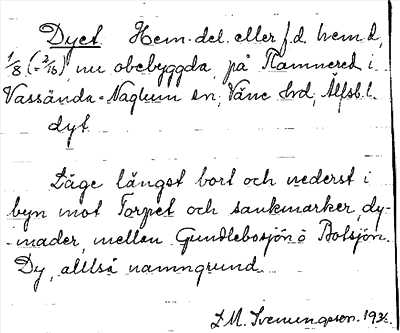 Dyet Hem.del. eller f.d. hem.d,
1/8 (-2/16), nu obebyggda, på Ramnered i
Vassända-Naglum sn; Väne hrd; Älfsb.l.
dyt
Läge längst bort och nederst i
byn mot Torpet och sankmarker, dy-
-mader, mellan Gundlebosjön o Botsjön.
Dy, alltså namngrund.
Sveningsson. 193